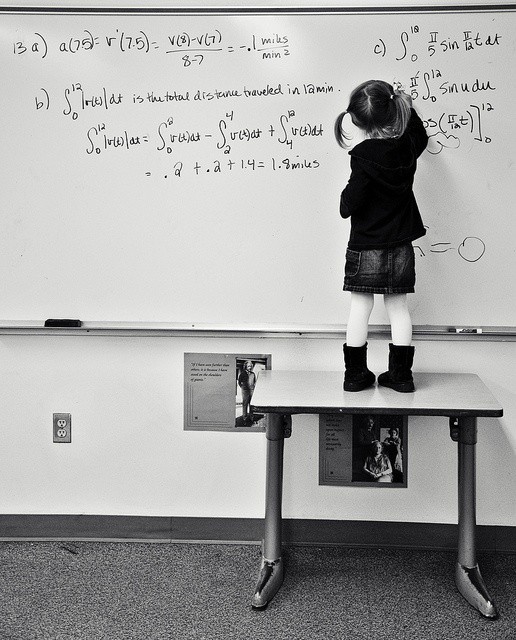 13 a) a(7.5) = v'(7.5) = v(8)-v(7) / 8-7 = -.1 miles/min²
b) ∫₀¹² |v(t)| dt is the total distance traveled in 12 min.
∫₀¹² |v(t)| dt = ∫₀² v(t)dt - ∫₂⁴ v(t)dt + ∫₄¹² v(t)dt
= .2 + .2 + 1.4 = 1.8 miles
c) ∫₀¹⁰ π/5 sin π/12 t dt
π/5 ∫₀¹² sin u du
os(π/12 t)]₀¹²
= 0
"If I have seen further than others, it is because I have stood on the shoulders of giants."